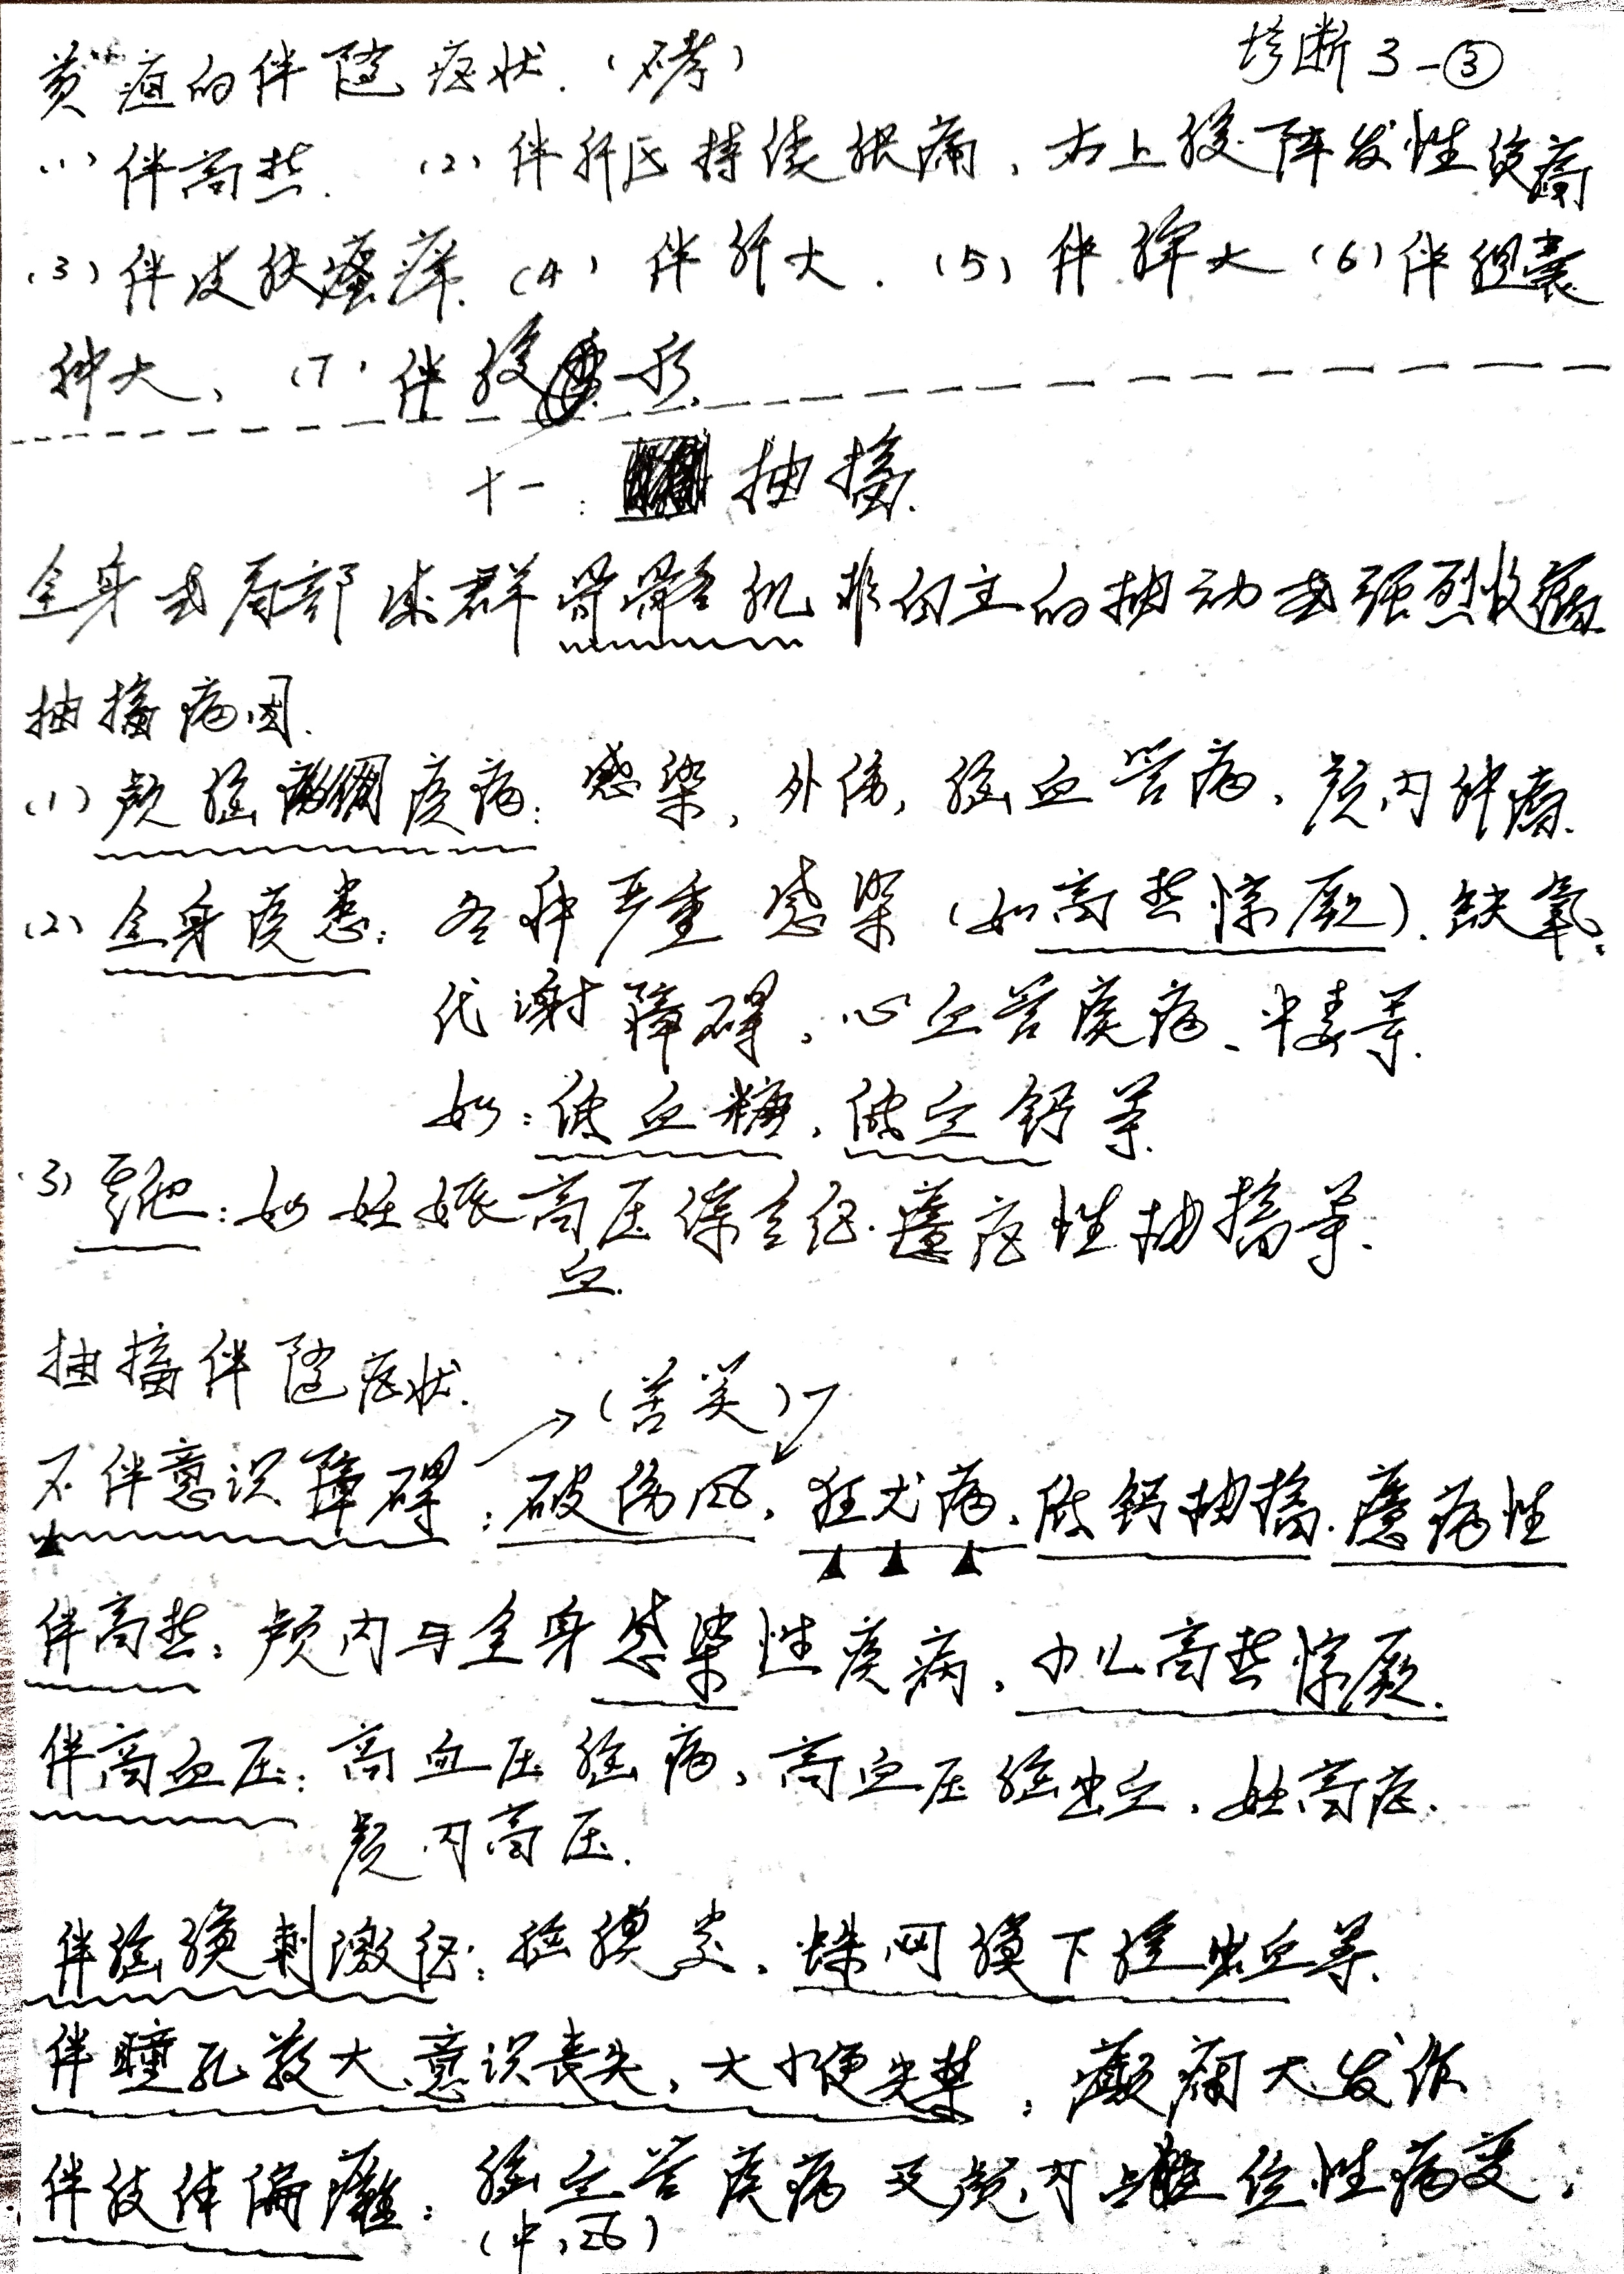 黄疸的伴随症状.(不考) 诊断3-③
(1)伴高热. (2)伴肝区持续胀痛,右上腹阵发性绞痛
(3)伴皮肤瘙痒.(4)伴肝大.(5)伴脾大(6)伴胆囊
肿大、(7)伴腹水.
十一. 抽搐.
全身或局部成群骨骼肌非自主的抽动或强烈收缩.
抽搐病因.
(1)颅脑疾病:感染,外伤,脑血管病,颅内肿瘤.
(2)全身疾患:各种严重感染(如高热惊厥).缺氧,
代谢障碍,心血管疾病、中毒等.
如:低血糖,低血钙等.
(3)其他:如妊娠高血压综合征.癔症性抽搐等.
抽搐伴随症状.
(苦笑)
不伴意识障碍:破伤风,狂犬病,低钙抽搐.癔病性
伴高热:颅内与全身感染性疾病,小儿高热惊厥.
伴高血压:高血压脑病,高血压脑出血,妊高症.
颅内高压.
伴脑膜刺激征:脑膜炎,蛛网膜下腔出血等.
伴瞳孔散大,意识丧失,大小便失禁:癫痫大发作
伴肢体偏瘫:脑血管疾病及颅内占位性病变.
(中风)